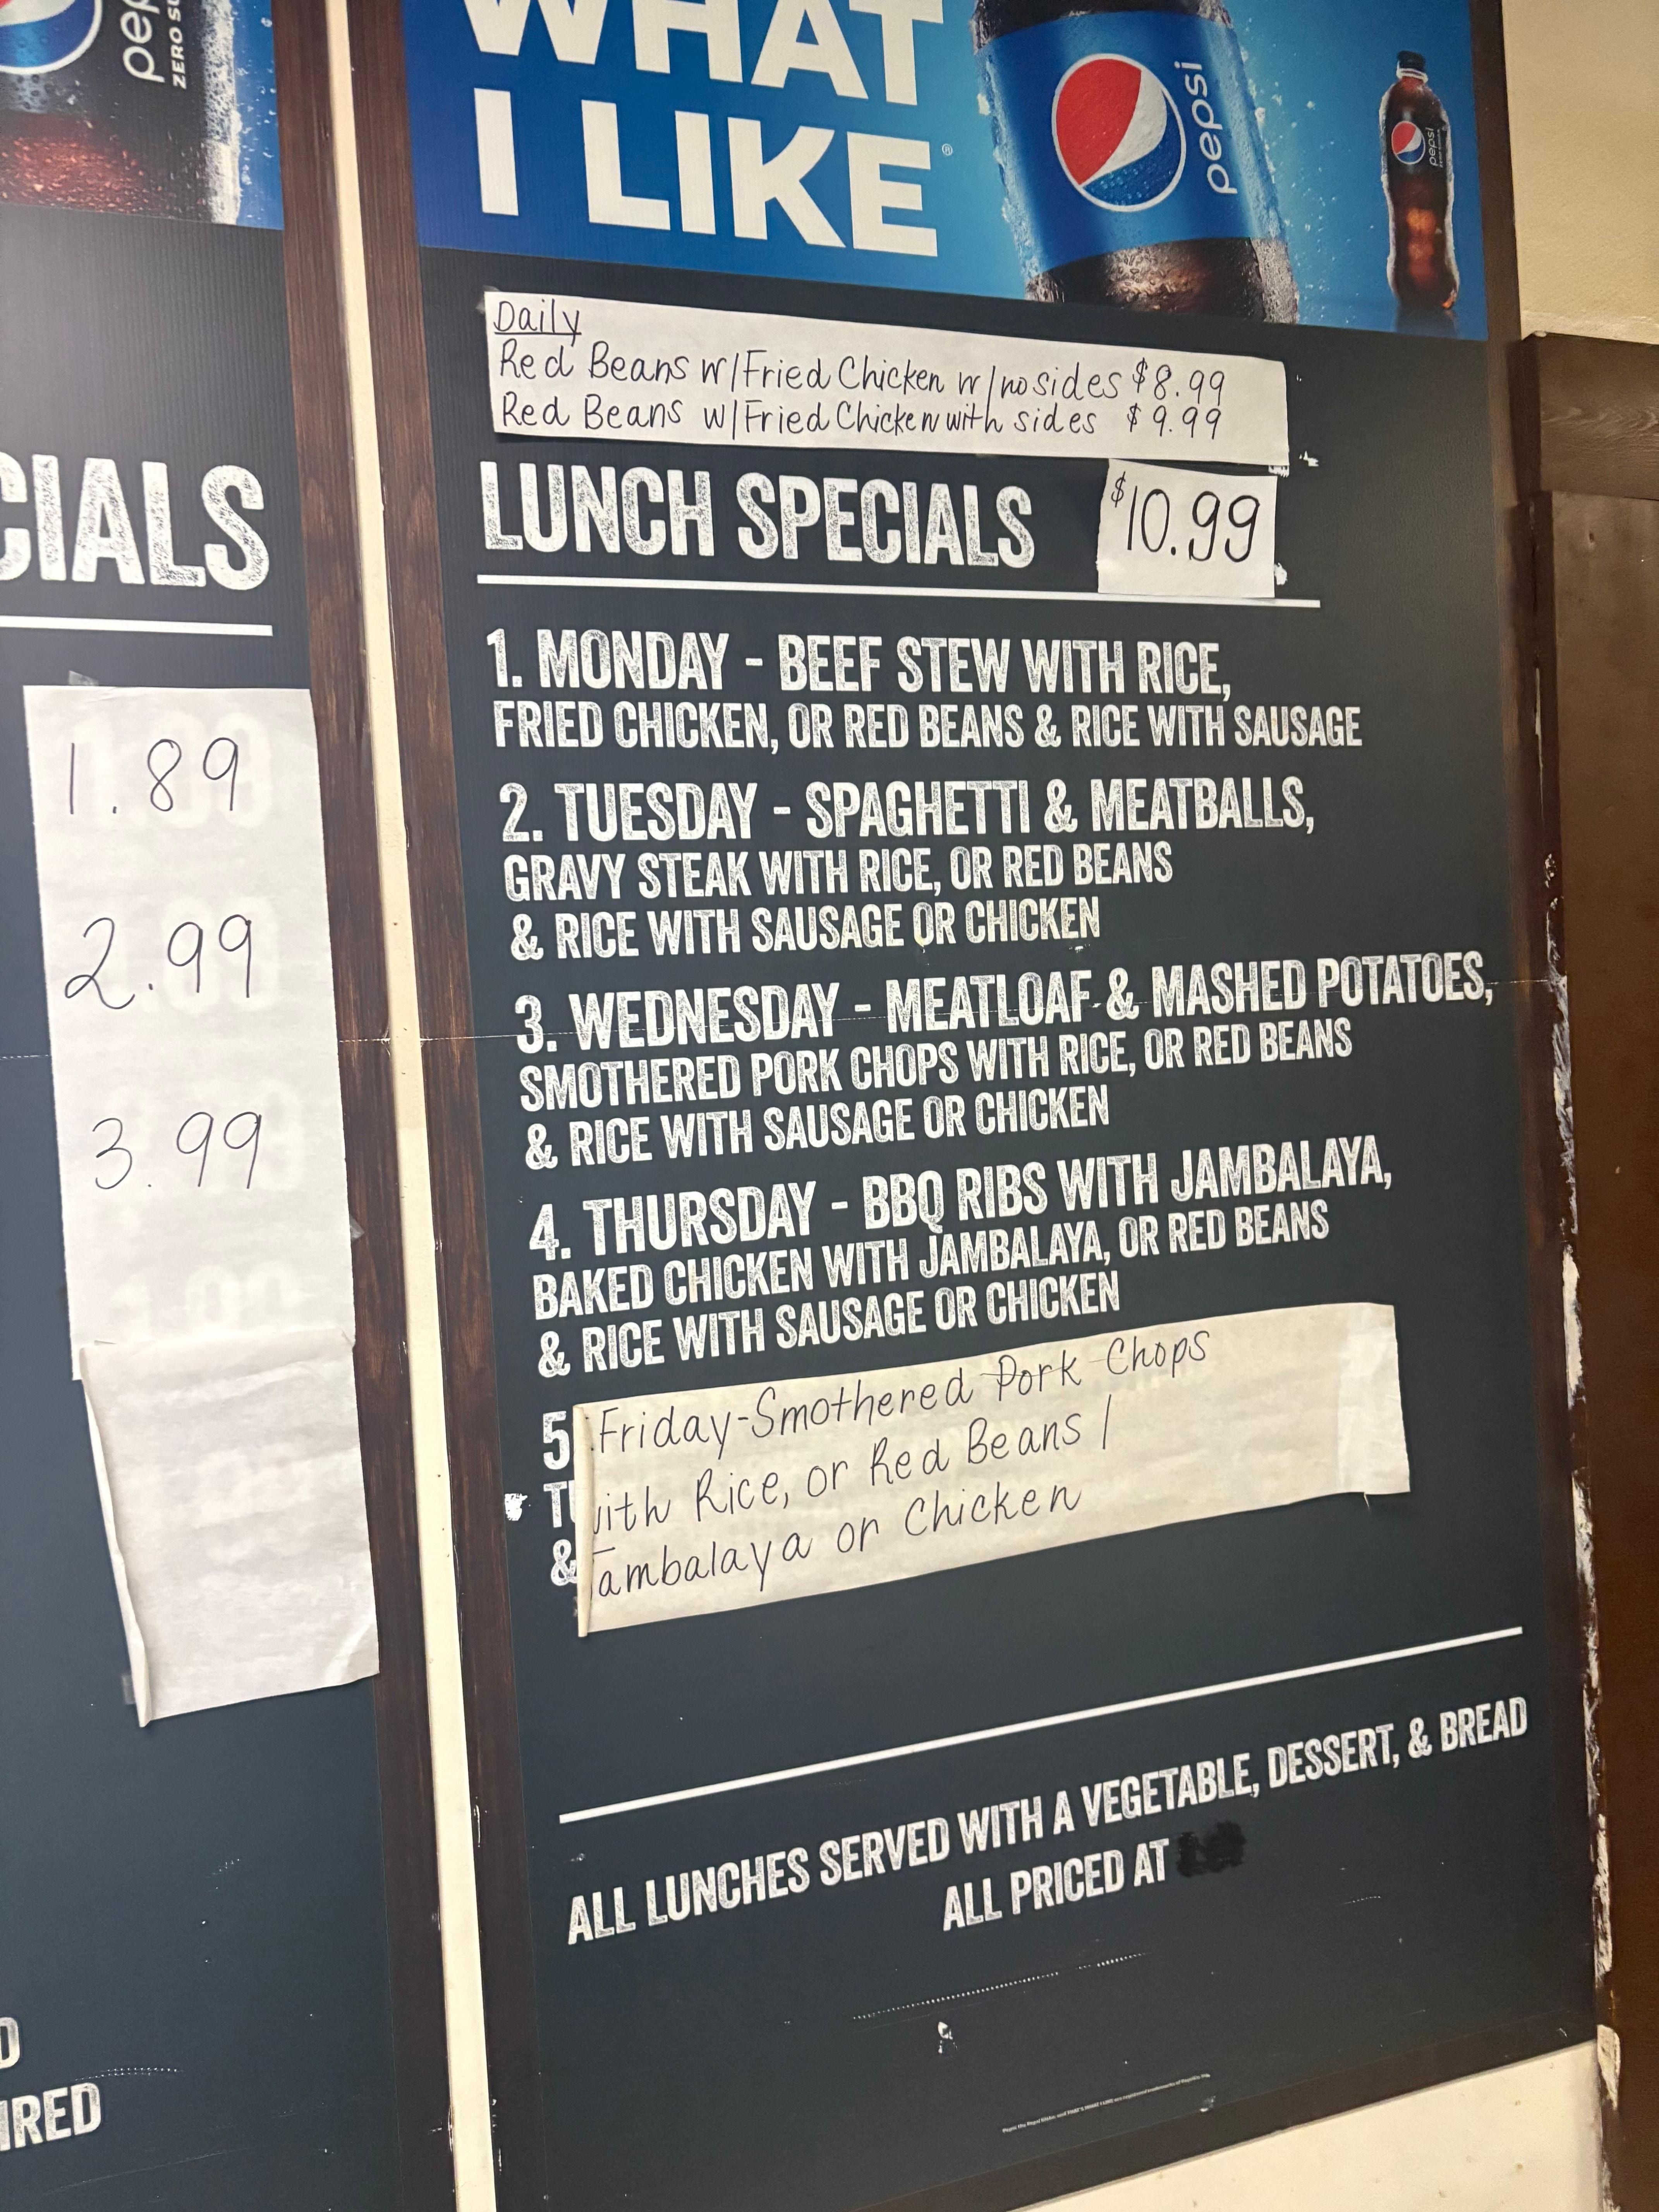 pep
ZERO SU
CIALS
1.89
2.99
3.99
D
IRED
WHAT
I LIKE®
pepsi
pepsi
Daily
Red Beans w/Fried Chicken w/no sides $8.99
Red Beans w/Fried Chicken with sides $9.99
LUNCH SPECIALS $10.99
1. MONDAY - BEEF STEW WITH RICE,
FRIED CHICKEN, OR RED BEANS & RICE WITH SAUSAGE
2. TUESDAY - SPAGHETTI & MEATBALLS,
GRAVY STEAK WITH RICE, OR RED BEANS
& RICE WITH SAUSAGE OR CHICKEN
3. WEDNESDAY - MEATLOAF & MASHED POTATOES,
SMOTHERED PORK CHOPS WITH RICE, OR RED BEANS
& RICE WITH SAUSAGE OR CHICKEN
4. THURSDAY - BBQ RIBS WITH JAMBALAYA,
BAKED CHICKEN WITH JAMBALAYA, OR RED BEANS
& RICE WITH SAUSAGE OR CHICKEN
5 Friday-Smothered Pork Chops
with Rice, or Red Beans /
& Jambalaya or Chicken
ALL LUNCHES SERVED WITH A VEGETABLE, DESSERT, & BREAD
ALL PRICED AT